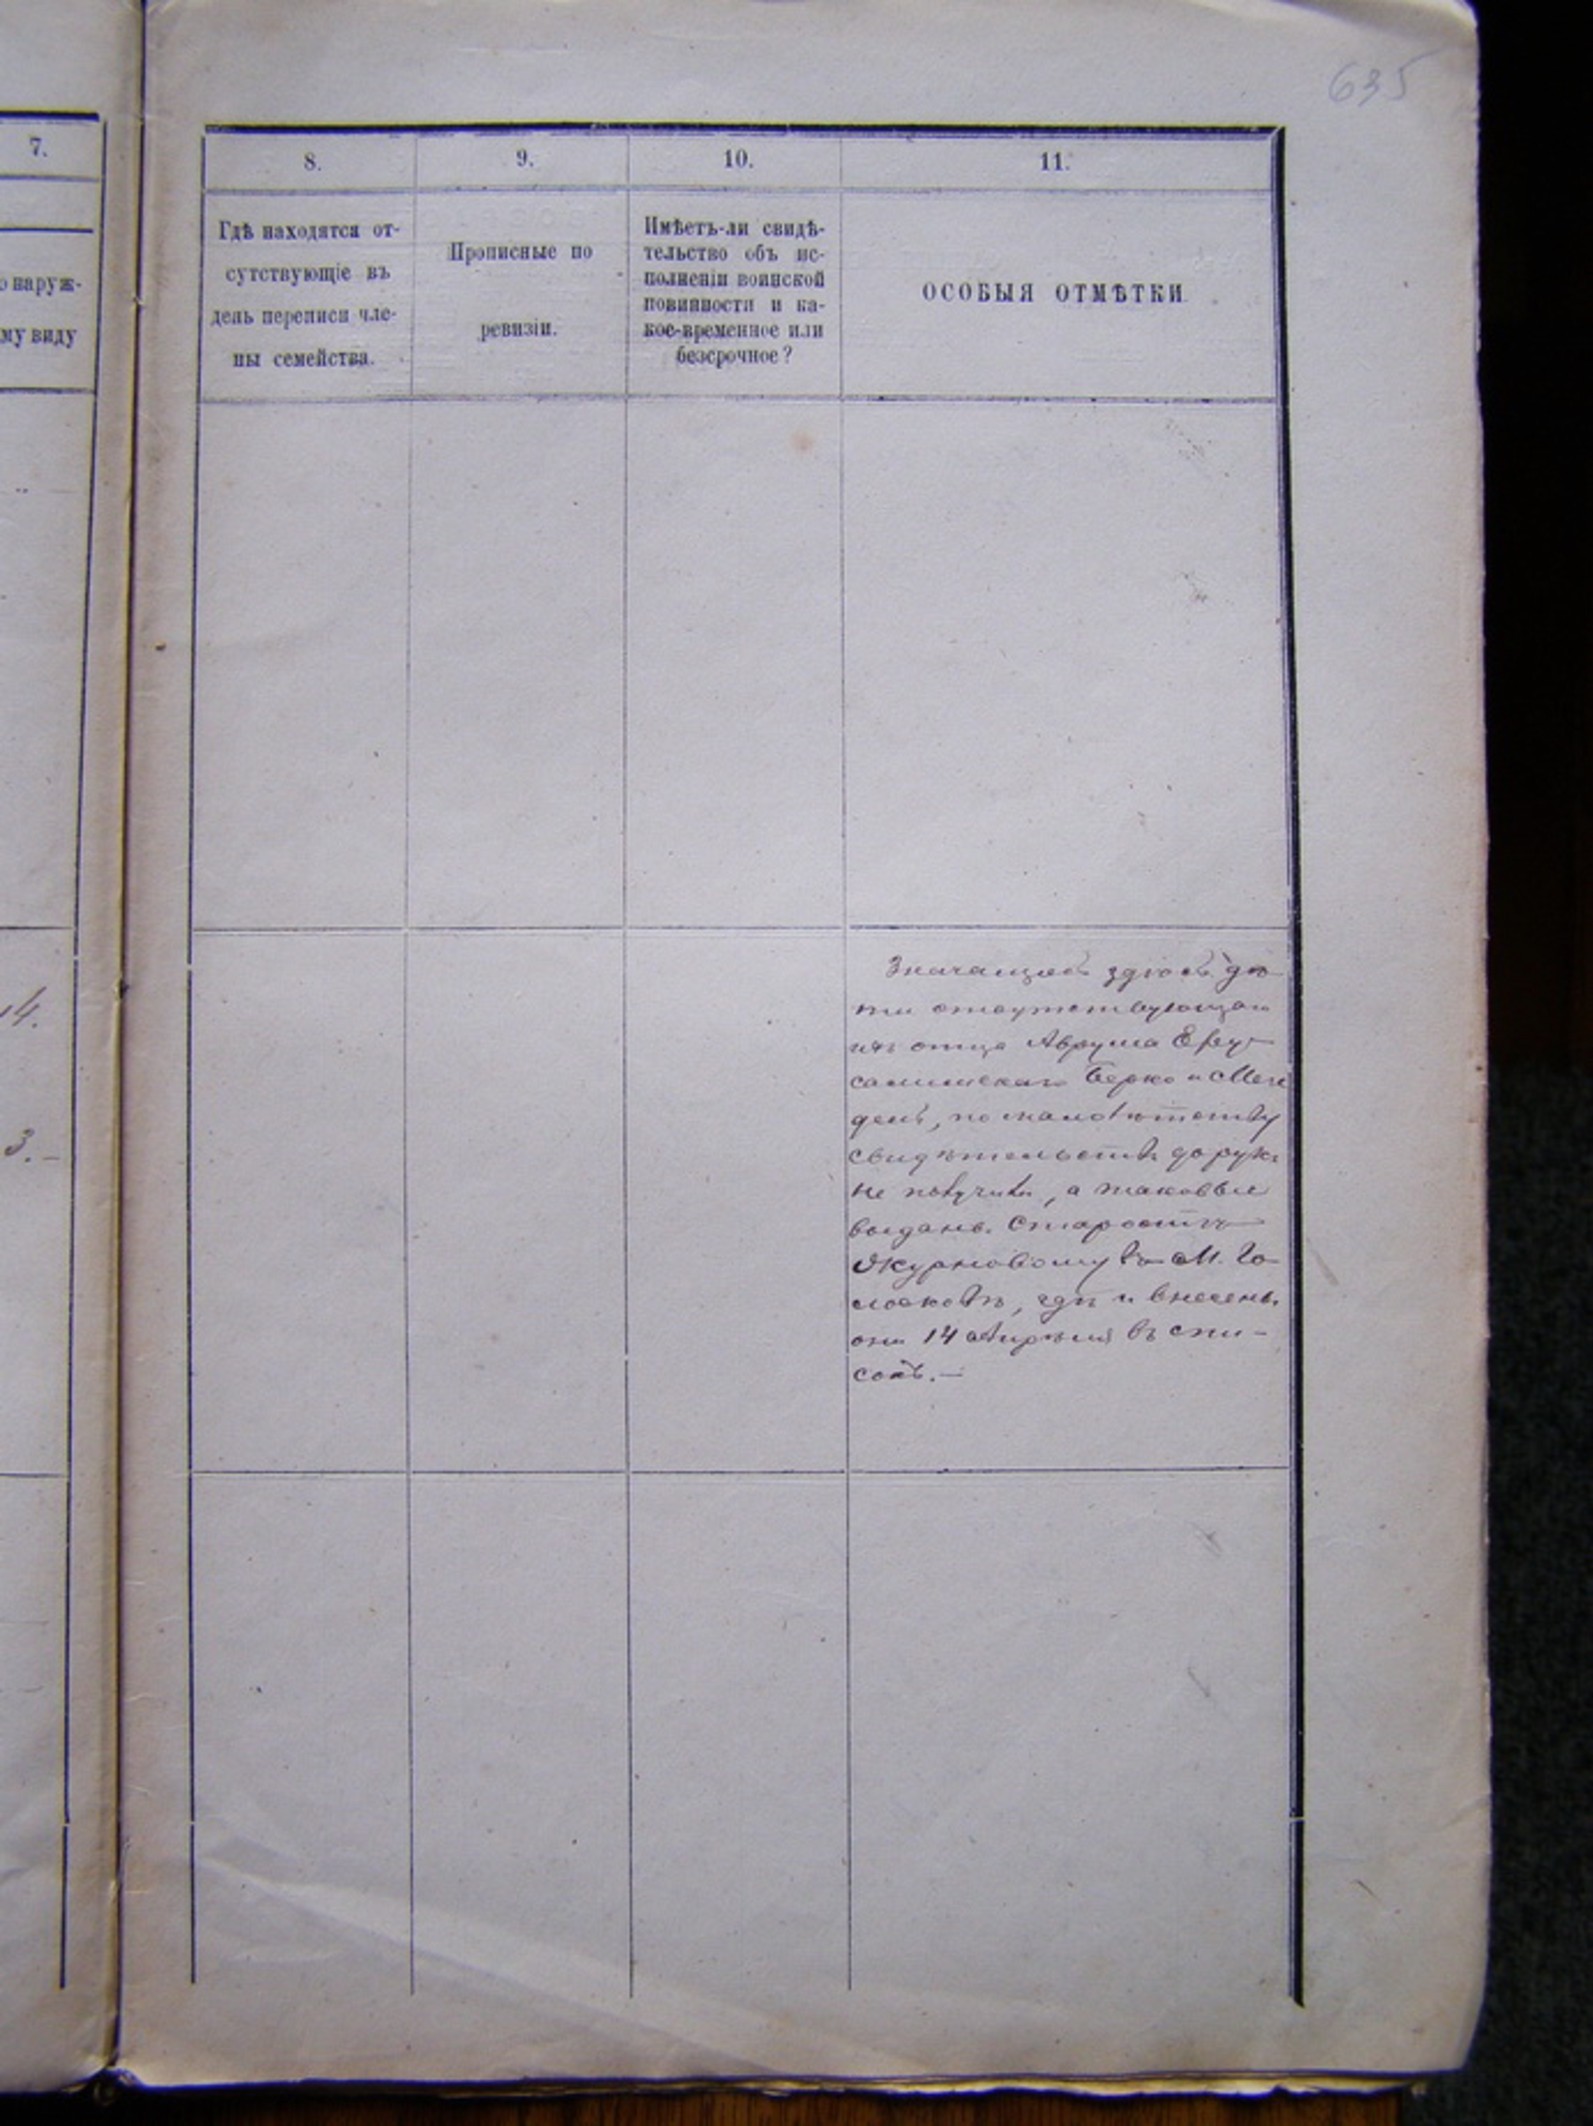 635
7.
о наруж-
му виду
14.
3.—
8.
9.
10.
11.
Гдѣ находятся от-
сутствующіе въ
день переписи чле-
ны семейства.
Прописные по
ревизіи.
Имѣетъ-ли свидѣ-
тельство объ ис-
полненіи воинской
повинности и ка-
кое-временное или
безсрочное?
ОСОБЫЯ ОТМѢТКИ
Значащіеся здѣсь дѣ-
ти отсутствующаго
отца Аврума Еру-
салимскаго Берко и
по малолѣтству
свидѣтельствъ до рукъ
не получили, а таковые
выданы Старостѣ
Журновому въ М. Го-
лосковъ, гдѣ и внесены
они 14 Апрѣля въ спи-
сокъ.—